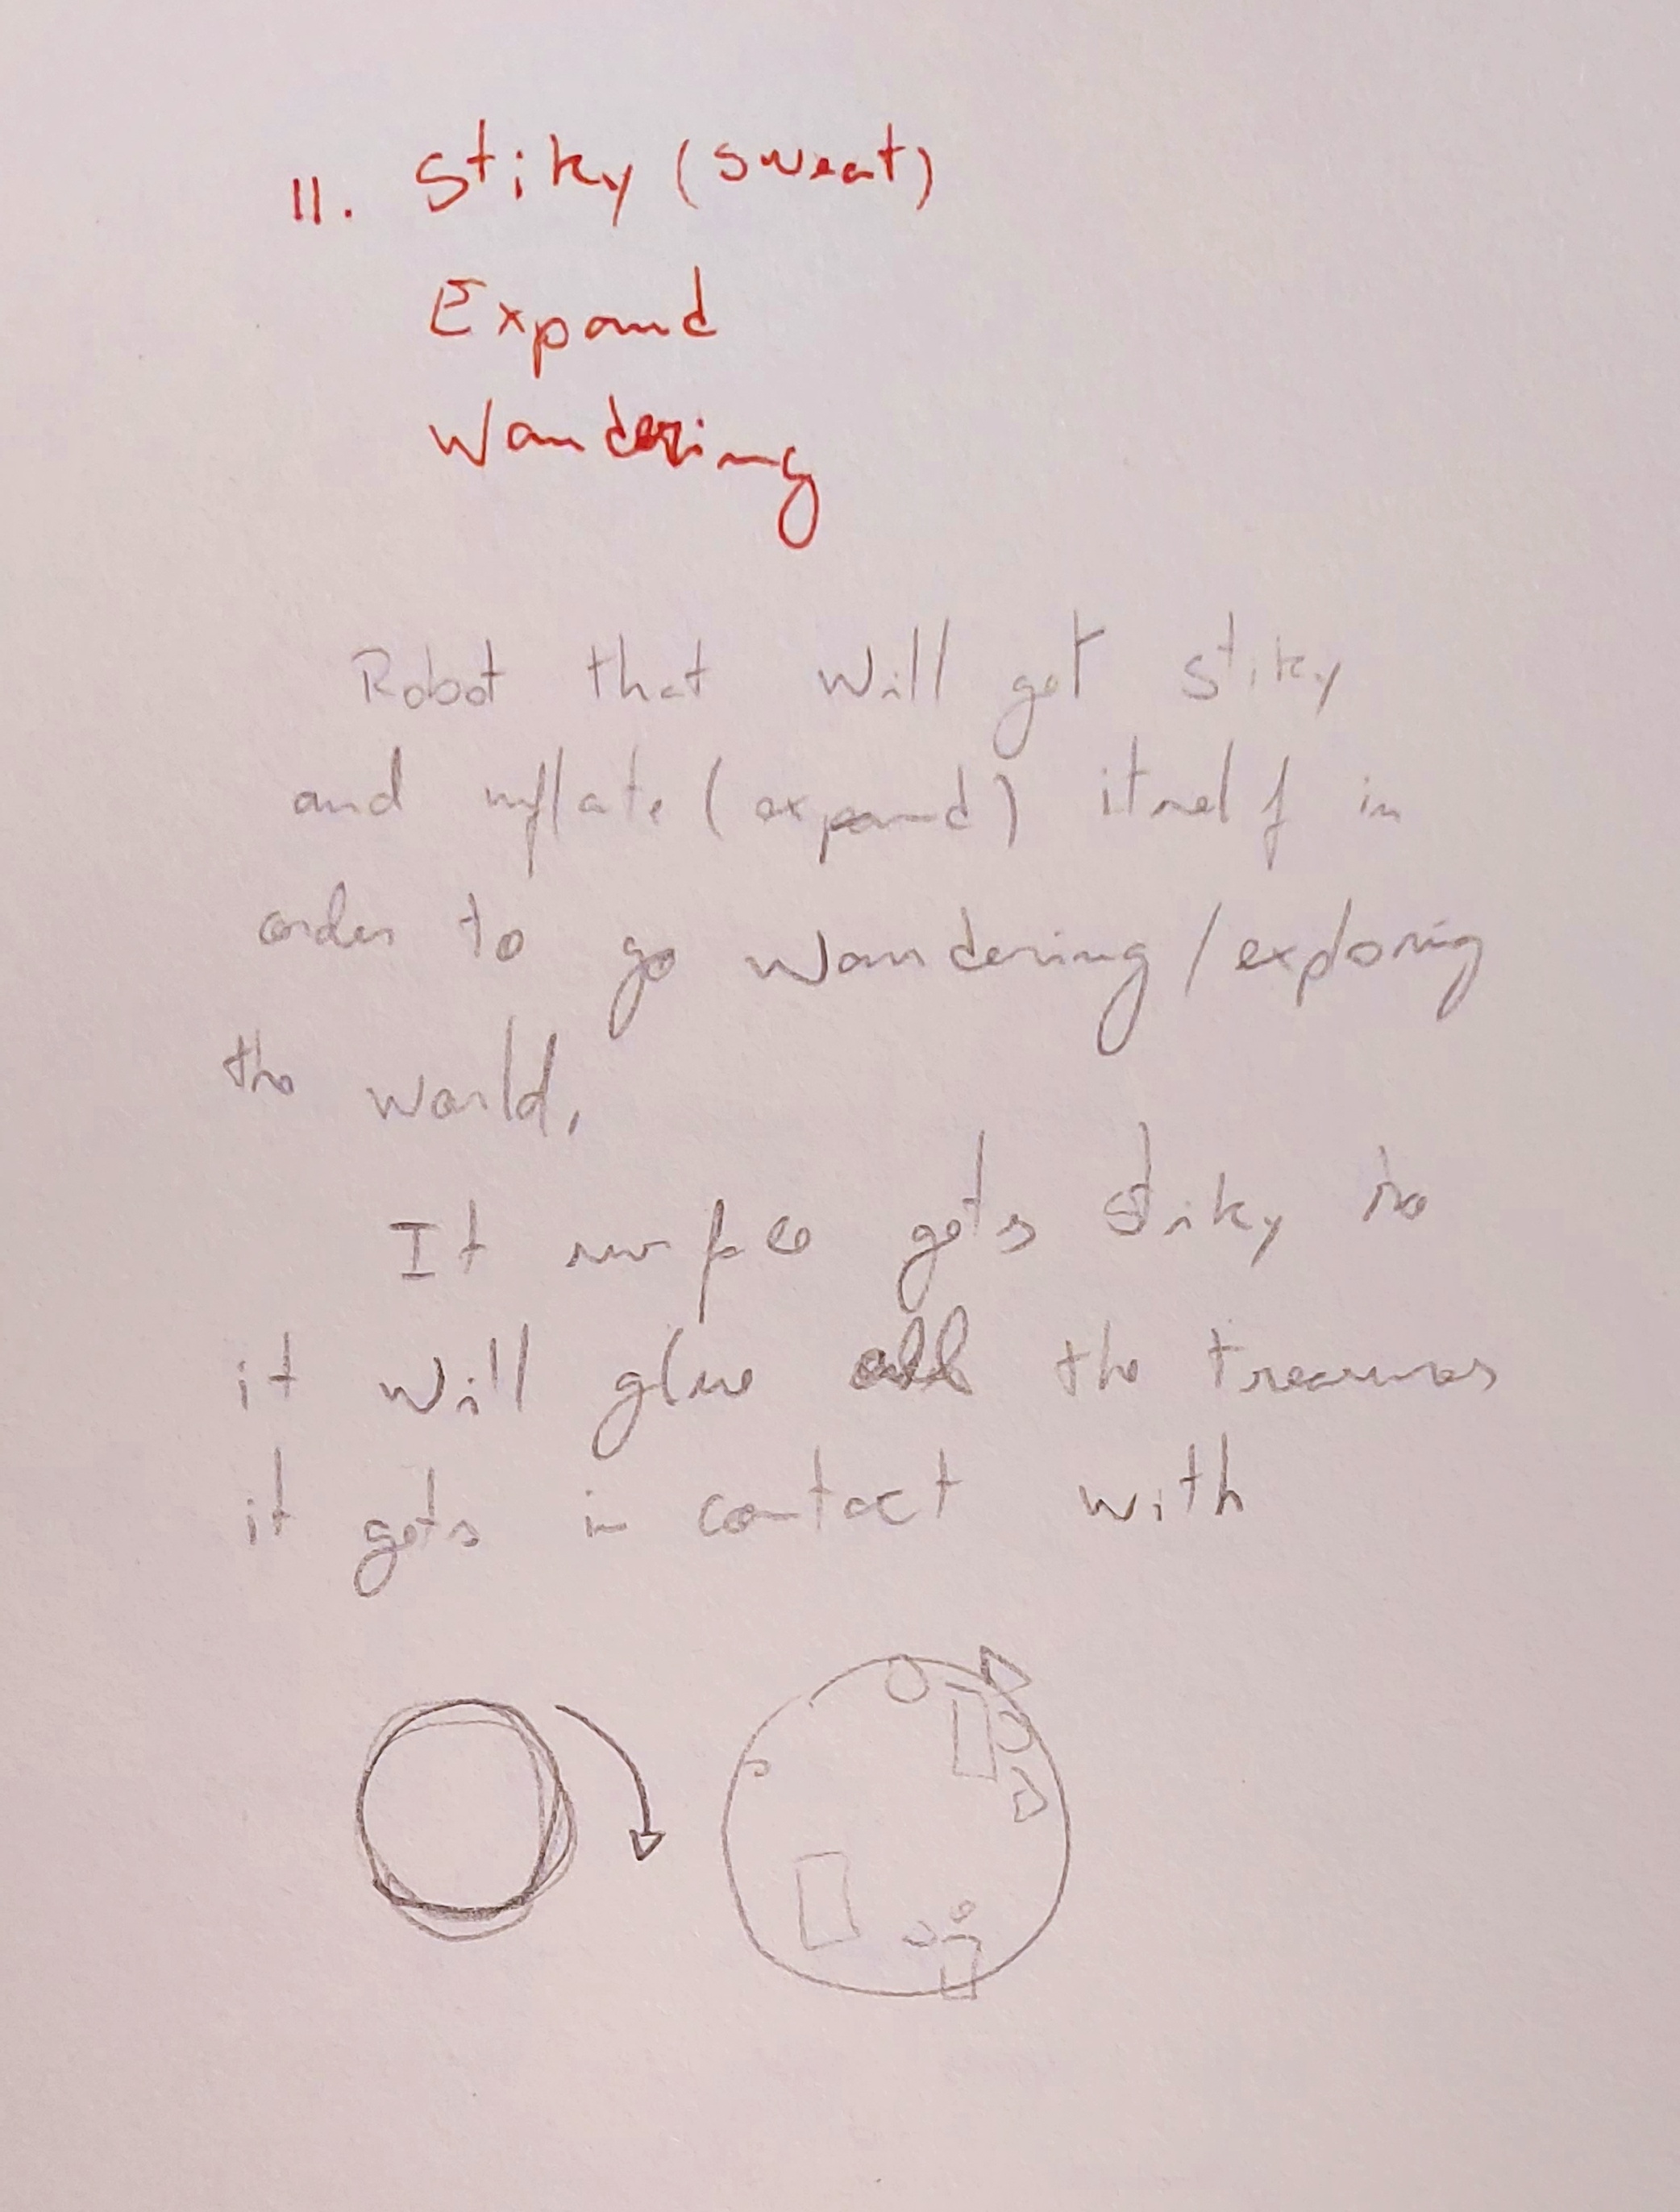 11. Stiky (sweat)
Expand
Wandering
Robot that will get stiky
and inflate (expand) itself in
order to go wandering / exploring
the world.
It surface gets stiky so
it will glue all the treasures
it gets in contact with